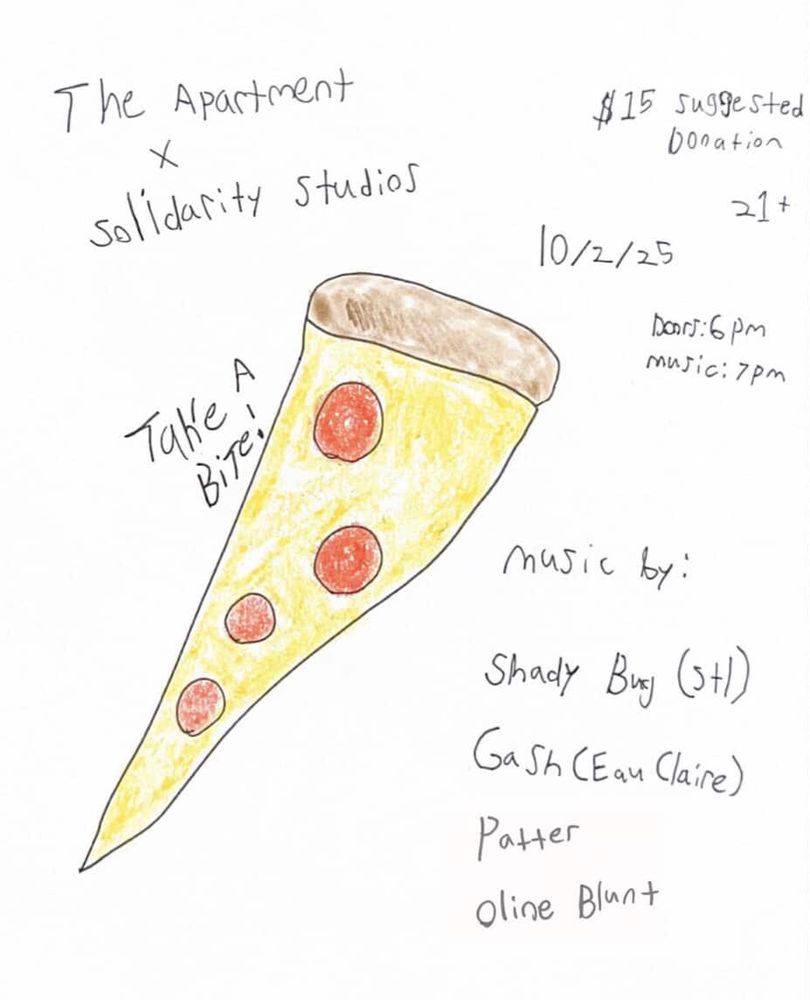 The Apartment
x
Solidarity Studios
$15 suggested
Donation
21+
10/2/25
Doors: 6pm
music: 7pm
Take A
Bite!
music by:
Shady Bug (stl)
Gash (Eau Claire)
Patter
Oline Blunt